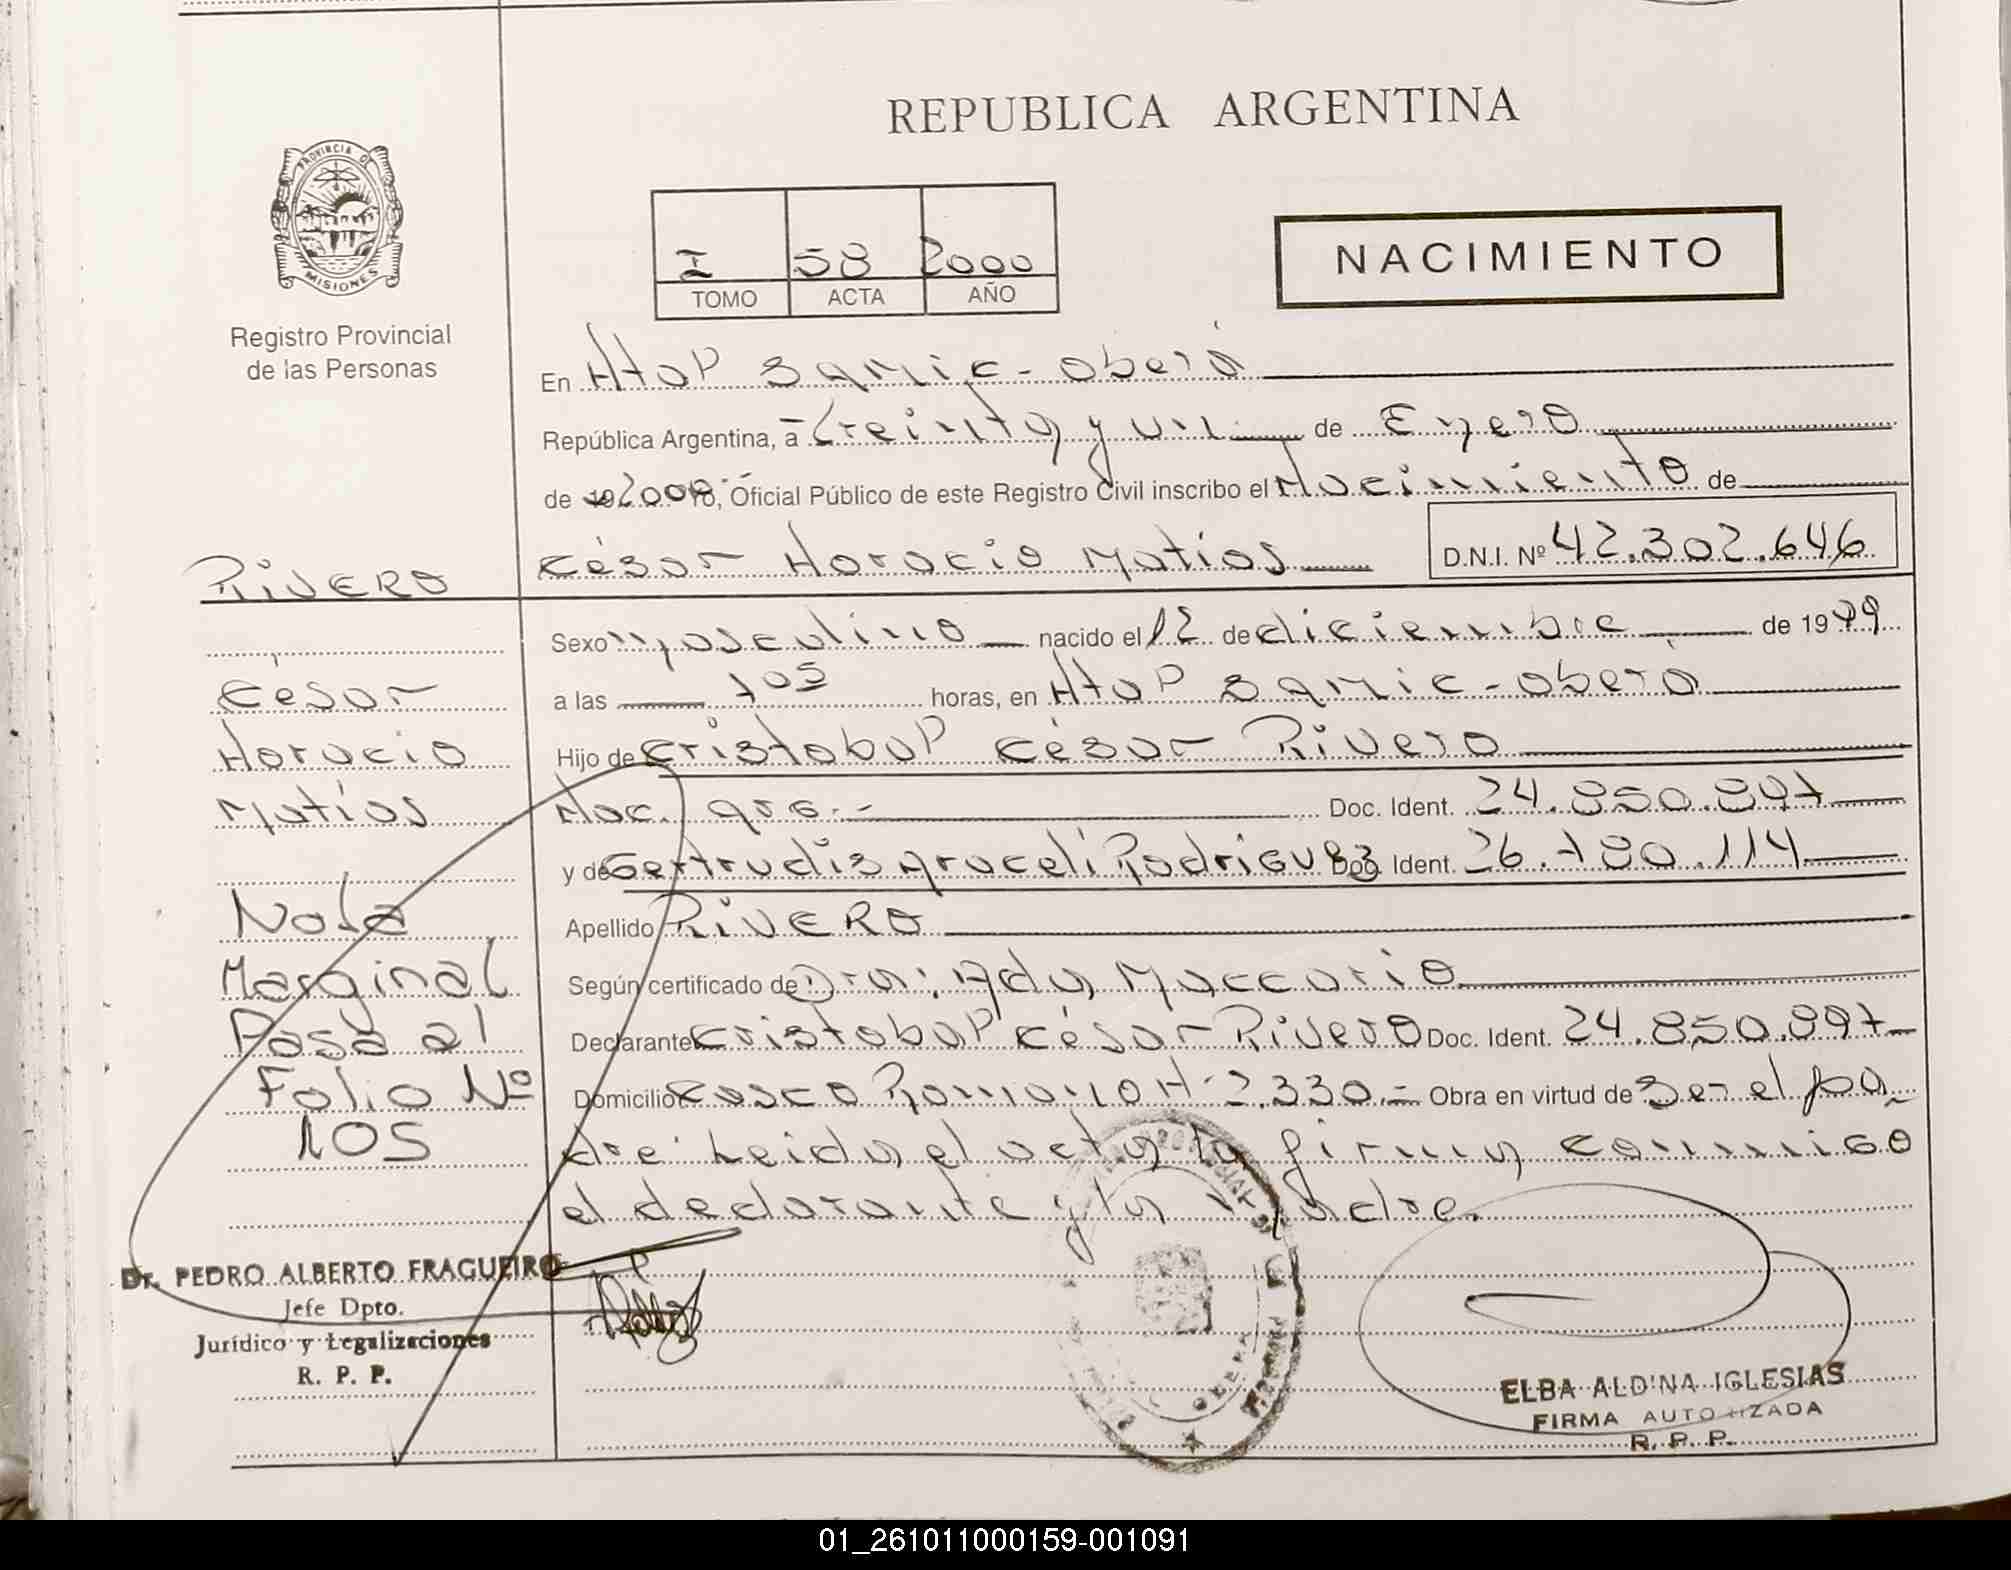 REPUBLICA ARGENTINA
PROVINCIA DE
MISIONES
Registro Provincial
de las Personas
I 58 2000
TOMO ACTA AÑO
NACIMIENTO
En Htal Samic - Oberá
República Argentina, a treinta y un de Enero
de 19 2000 Yo, Oficial Público de este Registro Civil inscribo el Nacimiento de
RIVERO
César Horacio Matías D.N.I. Nº 42.302.646
Sexo masculino nacido el 12 de diciembre de 1999
a las 7 05 horas, en Htal Samic - Oberá
Hijo de Cristobal César Rivero
Nac. arg. - Doc. Ident. 24.850.897
y de Gertrudis Araceli Rodriguez Doc. Ident. 26.780.114
Apellido RIVERO
Según certificado de Dra: Ada Maccario
Declarante Cristobal César Rivero Doc. Ident. 24.850.897
Domicilio Cosco Romano Nº 2.330.- Obra en virtud de Ser el pa
dre: Leida el acta la firma conmigo
el declarante y la Madre.
César
Horacio
Matías
Nota
Marginal
Pasa al
Folio Nº
105
Dr. PEDRO ALBERTO FRAGUEIRO
Jefe Dpto.
Jurídico y Legalizaciones
R. P. P.
ELBA ALDINA IGLESIAS
FIRMA AUTORIZADA
R. P. P.
01_261011000159-001091